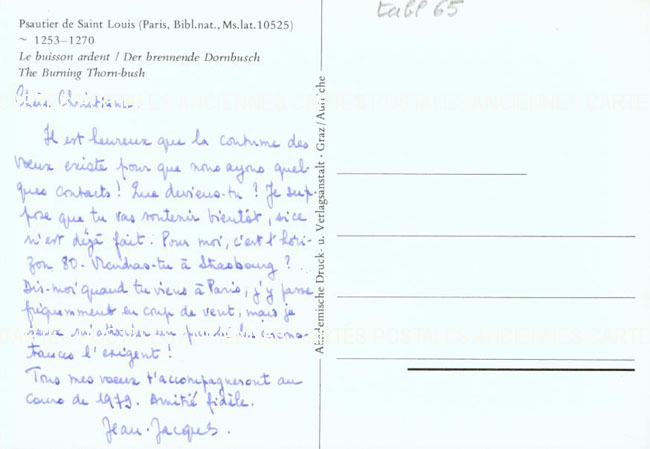 Psautier de Saint Louis (Paris, Bibl.nat., Ms.lat.10525)
~ 1253–1270
Le buisson ardent / Der brennende Dornbusch
The Burning Thorn-bush
Chère Christiane
Il est heureux que la coutume des
vœux existe pour que nous ayons quel-
ques contacts ! Que deviens-tu ? Je sup-
pose que tu vas soutenir bientôt, si ce
n'est déjà fait. Pour moi, c'est l'hori-
zon 80. Viendras-tu à Strasbourg ?
Dis-moi quand tu viens à Paris, j'y passe
fréquemment en coup de vent, mais je
peux m'attarder un peu si les circons-
tances l'exigent !
Tous mes vœux t'accompagneront au
cours de 1979. Amitié fidèle.
Jean-Jacques.
Akademische Druck- u. Verlagsanstalt · Graz/Autriche
65
CARTES POSTALES ANCIENNES